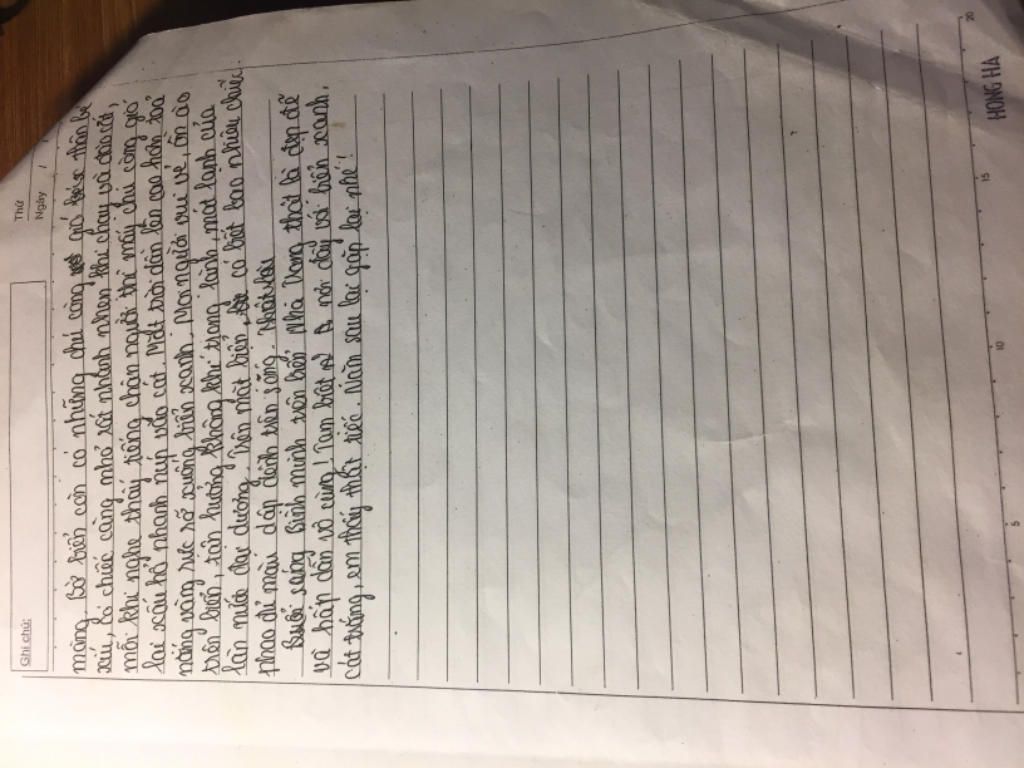 Thứ
Ngày
Ghi chú:
mỏng. Bờ biển còn có những chú còng gió thân bé
xíu, 2 chiếc càng nhỏ rất nhanh nhẹn khi chạy và đào cát,
mỗi khi nghe thấy tiếng chân người thì mấy chú còng gió
lại xấu hổ nhanh núp vào cát. Mặt trời dần lên cao hơn, toả
nắng vàng rực rỡ xuống biển xanh. Mọi người vui vẻ, ồn ào
trên biển, tận hưởng không khí trong lành, mát lạnh của
làn nước đại dương. Trên mặt biển, có biết bao nhiêu chiếc
phao đủ màu dập dềnh trên sóng.
Buổi sáng bình minh trên biển Nha Trang thật là đẹp đẽ
và hấp dẫn vô cùng! Tạm biệt nơi đây với biển xanh,
cát trắng, em thấy thật tiếc. Năm sau lại gặp lại nhé!
5
10
15
20
HONG HA